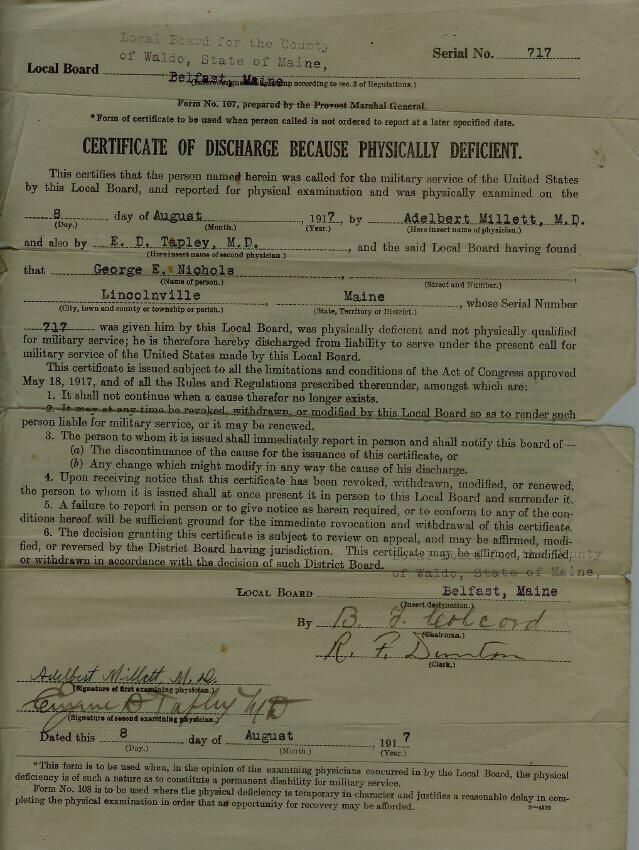 Local Board for the County
of Waldo, State of Maine,
Serial No. 717
Local Board Belfast, Maine
according to sec. 3 of Regulations.)
Form No. 107, prepared by the Provost Marshal General.
*Form of certificate to be used when person called is not ordered to report at a later specified date.
CERTIFICATE OF DISCHARGE BECAUSE PHYSICALLY DEFICIENT.
This certifies that the person named herein was called for the military service of the United States
by this Local Board, and reported for physical examination and was physically examined on the
8 day of August 1917, by Adelbert Millett, M.D.
(Day.) (Month.) (Year.) (Here insert name of physician.)
and also by E. D. Tapley, M.D. , and the said Local Board having found
(Here insert name of second physician.)
that George E. Nichols ,
(Name of person.) (Street and Number.)
Lincolnville Maine , whose Serial Number
(City, town and county or township or parish.) (State, Territory or District.)
717 was given him by this Local Board, was physically deficient and not physically qualified
for military service; he is therefore hereby discharged from liability to serve under the present call for
military service of the United States made by this Local Board.
This certificate is issued subject to all the limitations and conditions of the Act of Congress approved
May 18, 1917, and of all the Rules and Regulations prescribed thereunder, amongst which are:
1. It shall not continue when a cause therefor no longer exists.
2. It may at any time be revoked, withdrawn, or modified by this Local Board so as to render such
person liable for military service, or it may be renewed.
3. The person to whom it is issued shall immediately report in person and shall notify this board of—
(a) The discontinuance of the cause for the issuance of this certificate, or
(b) Any change which might modify in any way the cause of his discharge.
4. Upon receiving notice that this certificate has been revoked, withdrawn, modified, or renewed,
the person to whom it is issued shall at once present it in person to this Local Board and surrender it.
5. A failure to report in person or to give notice as herein required, or to conform to any of the con-
ditions hereof will be sufficient ground for the immediate revocation and withdrawal of this certificate.
6. The decision granting this certificate is subject to review on appeal, and may be affirmed, modi-
fied, or reversed by the District Board having jurisdiction. This certificate may be affirmed, modified,
or withdrawn in accordance with the decision of such District Board.
County
of Waldo, State of Maine,
LOCAL BOARD Belfast, Maine
(Insert designation.)
By B. F. Colcord
(Chairman.)
R. F. Dunton
(Clerk.)
Adelbert Millett, M. D.
(Signature of first examining physician.)
Eugene D Tapley MD
(Signature of second examining physician.)
Dated this 8 day of August , 1917
(Day.) (Month.) (Year.)
*This form is to be used when, in the opinion of the examining physicians concurred in by the Local Board, the physical
deficiency is of such a nature as to constitute a permanent disability for military service.
Form No. 108 is to be used where the physical deficiency is temporary in character and justifies a reasonable delay in com-
pleting the physical examination in order that an opportunity for recovery may be afforded.